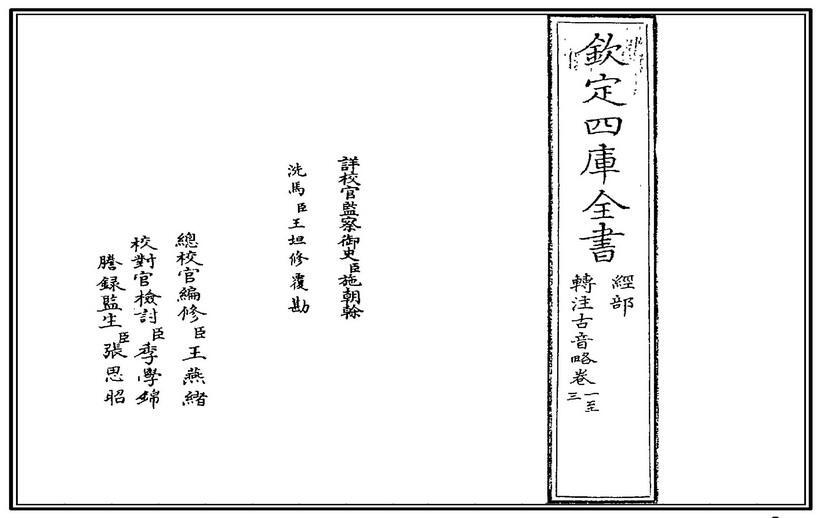 欽定四庫全書
經部
轉注古音略卷一至三
詳校官監察御史臣施朝幹
洗馬臣王坦修覆勘
總校官編修臣王燕緒
校對官檢討臣季學錦
謄錄監生臣張思昭